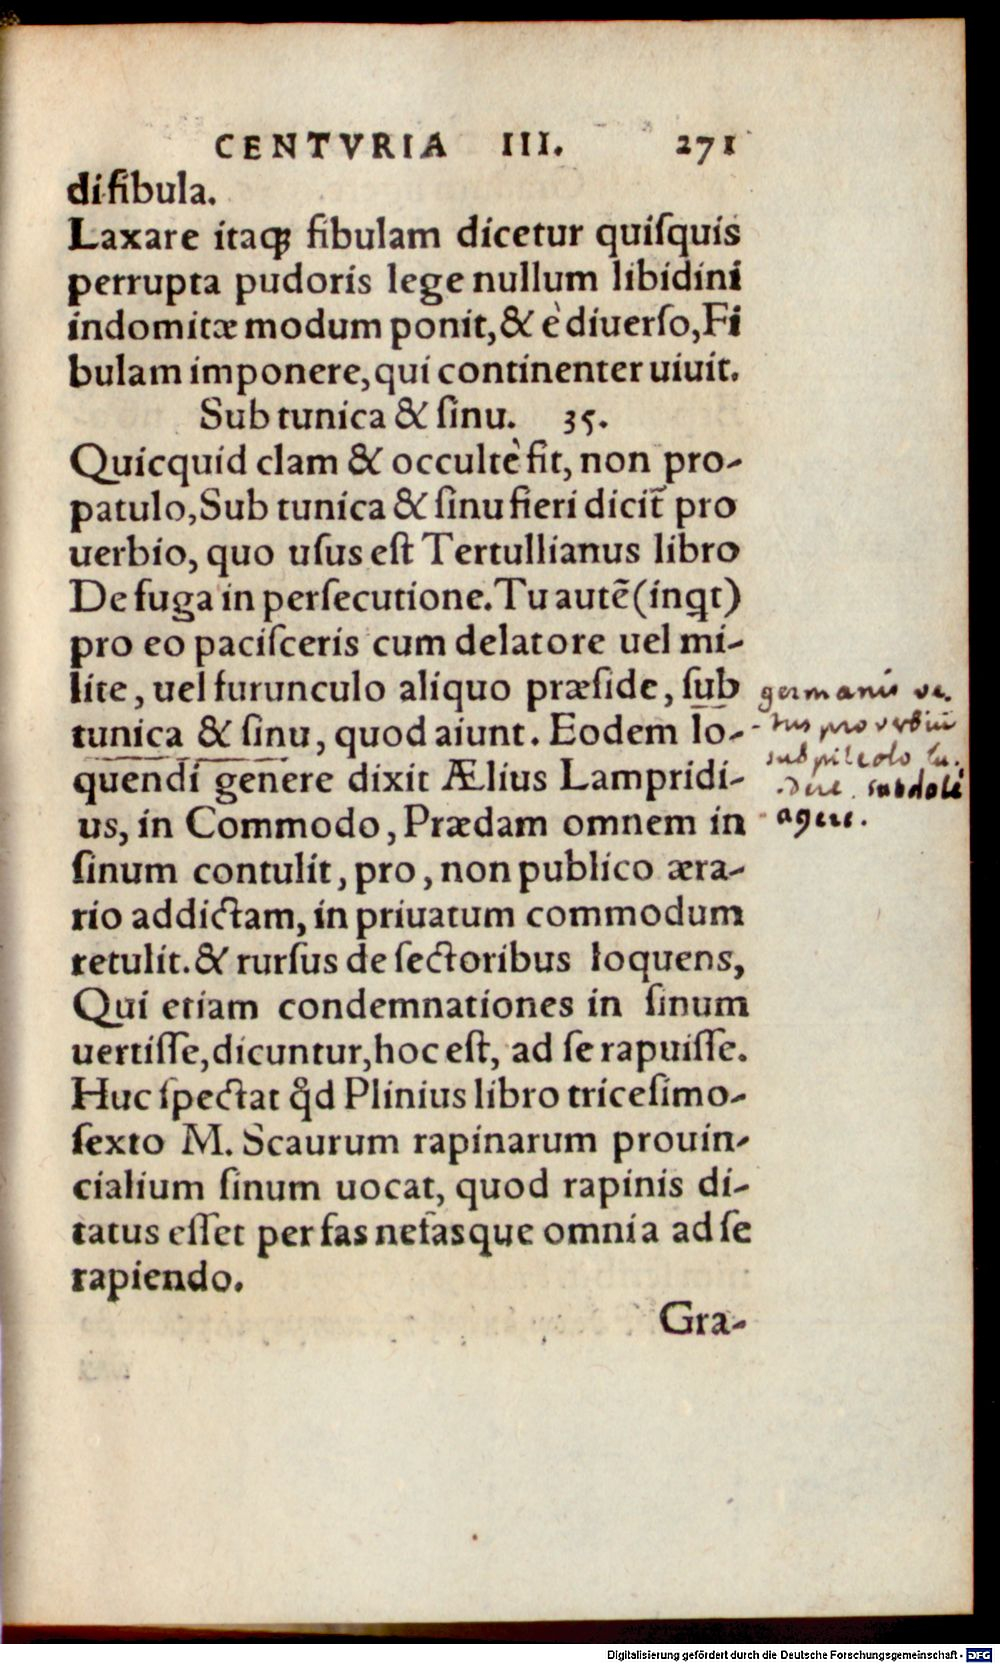 CENTVRIA III. 271
di fibula.
Laxare itaqꝫ fibulam dicetur quiſquis
perrupta pudoris lege nullum libidini
indomitæ modum ponit,& è diuerſo,Fi
bulam imponere,qui continenter uiuit.
Sub tunica & ſinu. 35.
Quicquid clam & occultè fit, non pro-
patulo,Sub tunica & ſinu fieri dicit̃ pro
uerbio, quo uſus eſt Tertullianus libro
De fuga in perſecutione.Tu autẽ(inqt)
pro eo paciſceris cum delatore uel mi-
lite, uel furunculo aliquo præſide, ſub
tunica & ſinu, quod aiunt. Eodem lo-
quendi genere dixit Ælius Lampridi-
us, in Commodo, Prædam omnem in
ſinum contulit, pro, non publico æra-
rio addictam, in priuatum commodum
retulit.& rurſus de ſectoribus loquens,
Qui etiam condemnationes in ſinum
uertiſſe,dicuntur,hoc eſt, ad ſe rapuiſſe.
Huc ſpectat qd̉ Plinius libro triceſimo-
ſexto M. Scaurum rapinarum prouin-
cialium ſinum uocat, quod rapinis di-
tatus eſſet per fas nefasque omnia ad ſe
rapiendo.
Gra-
germanis ve-
tus proverbiū
sub pileolo lu-
dere subdole
agere.
Digitalisierung gefördert durch die Deutsche Forschungsgemeinschaft - DFG